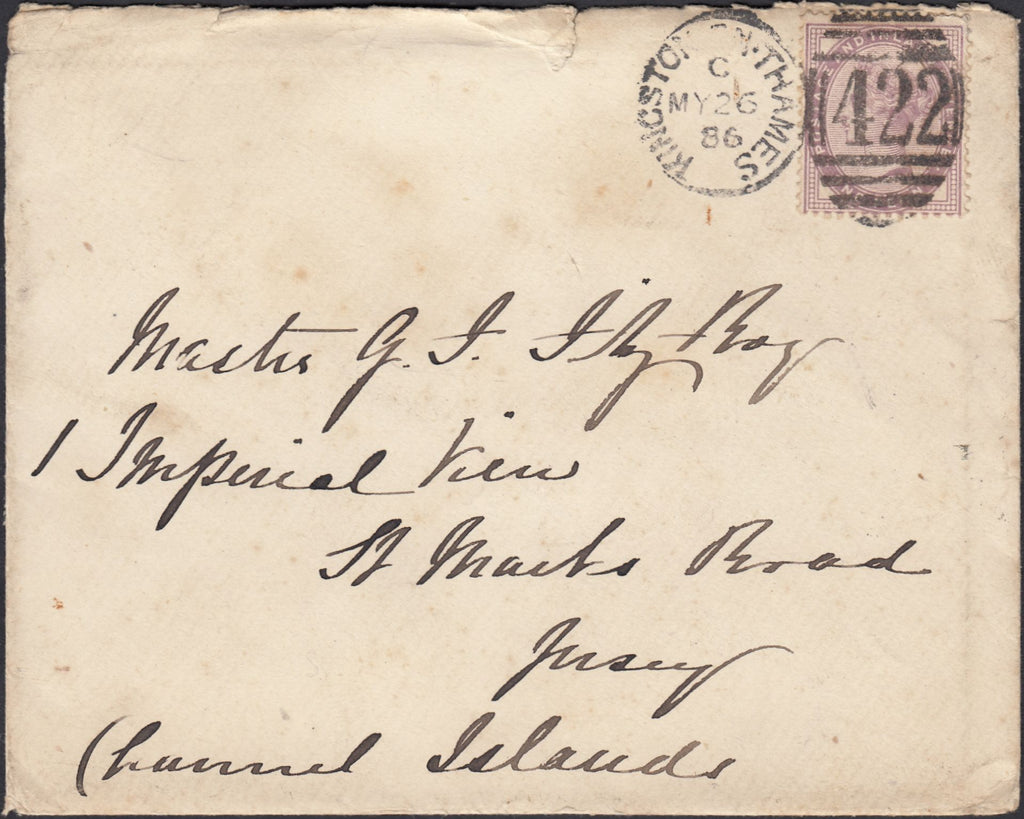 KINGSTON-ON-THAMES
C
MY 26
86
422
Master G. F. FitzRoy
1 Imperial View
St Mark's Road
Jersey
Channel Islands